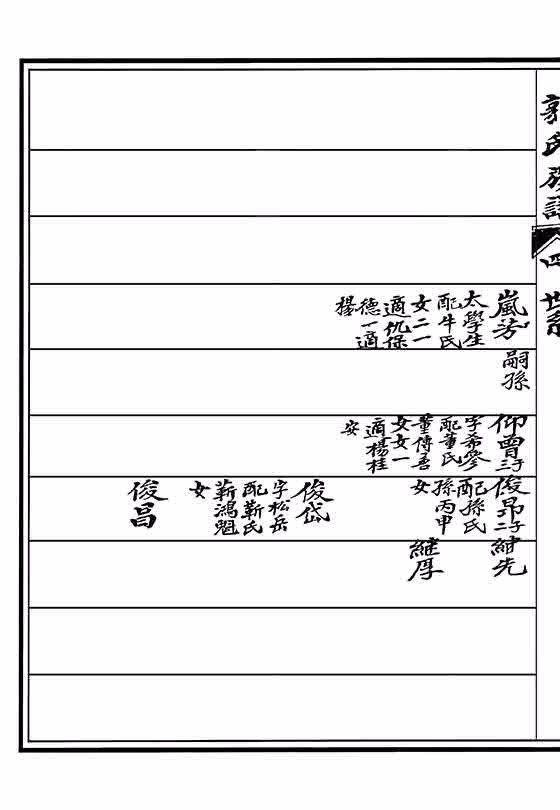 郭氏族譜
四
世系
嵐芳
太學生
配牛氏
女二一
適仇保
德一適
楊
嗣孫
仰曾三子
字希參
配董氏
董傳善
女女一
適楊桂
安
俊昂二子
配孫氏
孫丙甲
女
俊岱
字松岳
配靳氏
靳鴻魁
女
俊昌
紹先
維厚